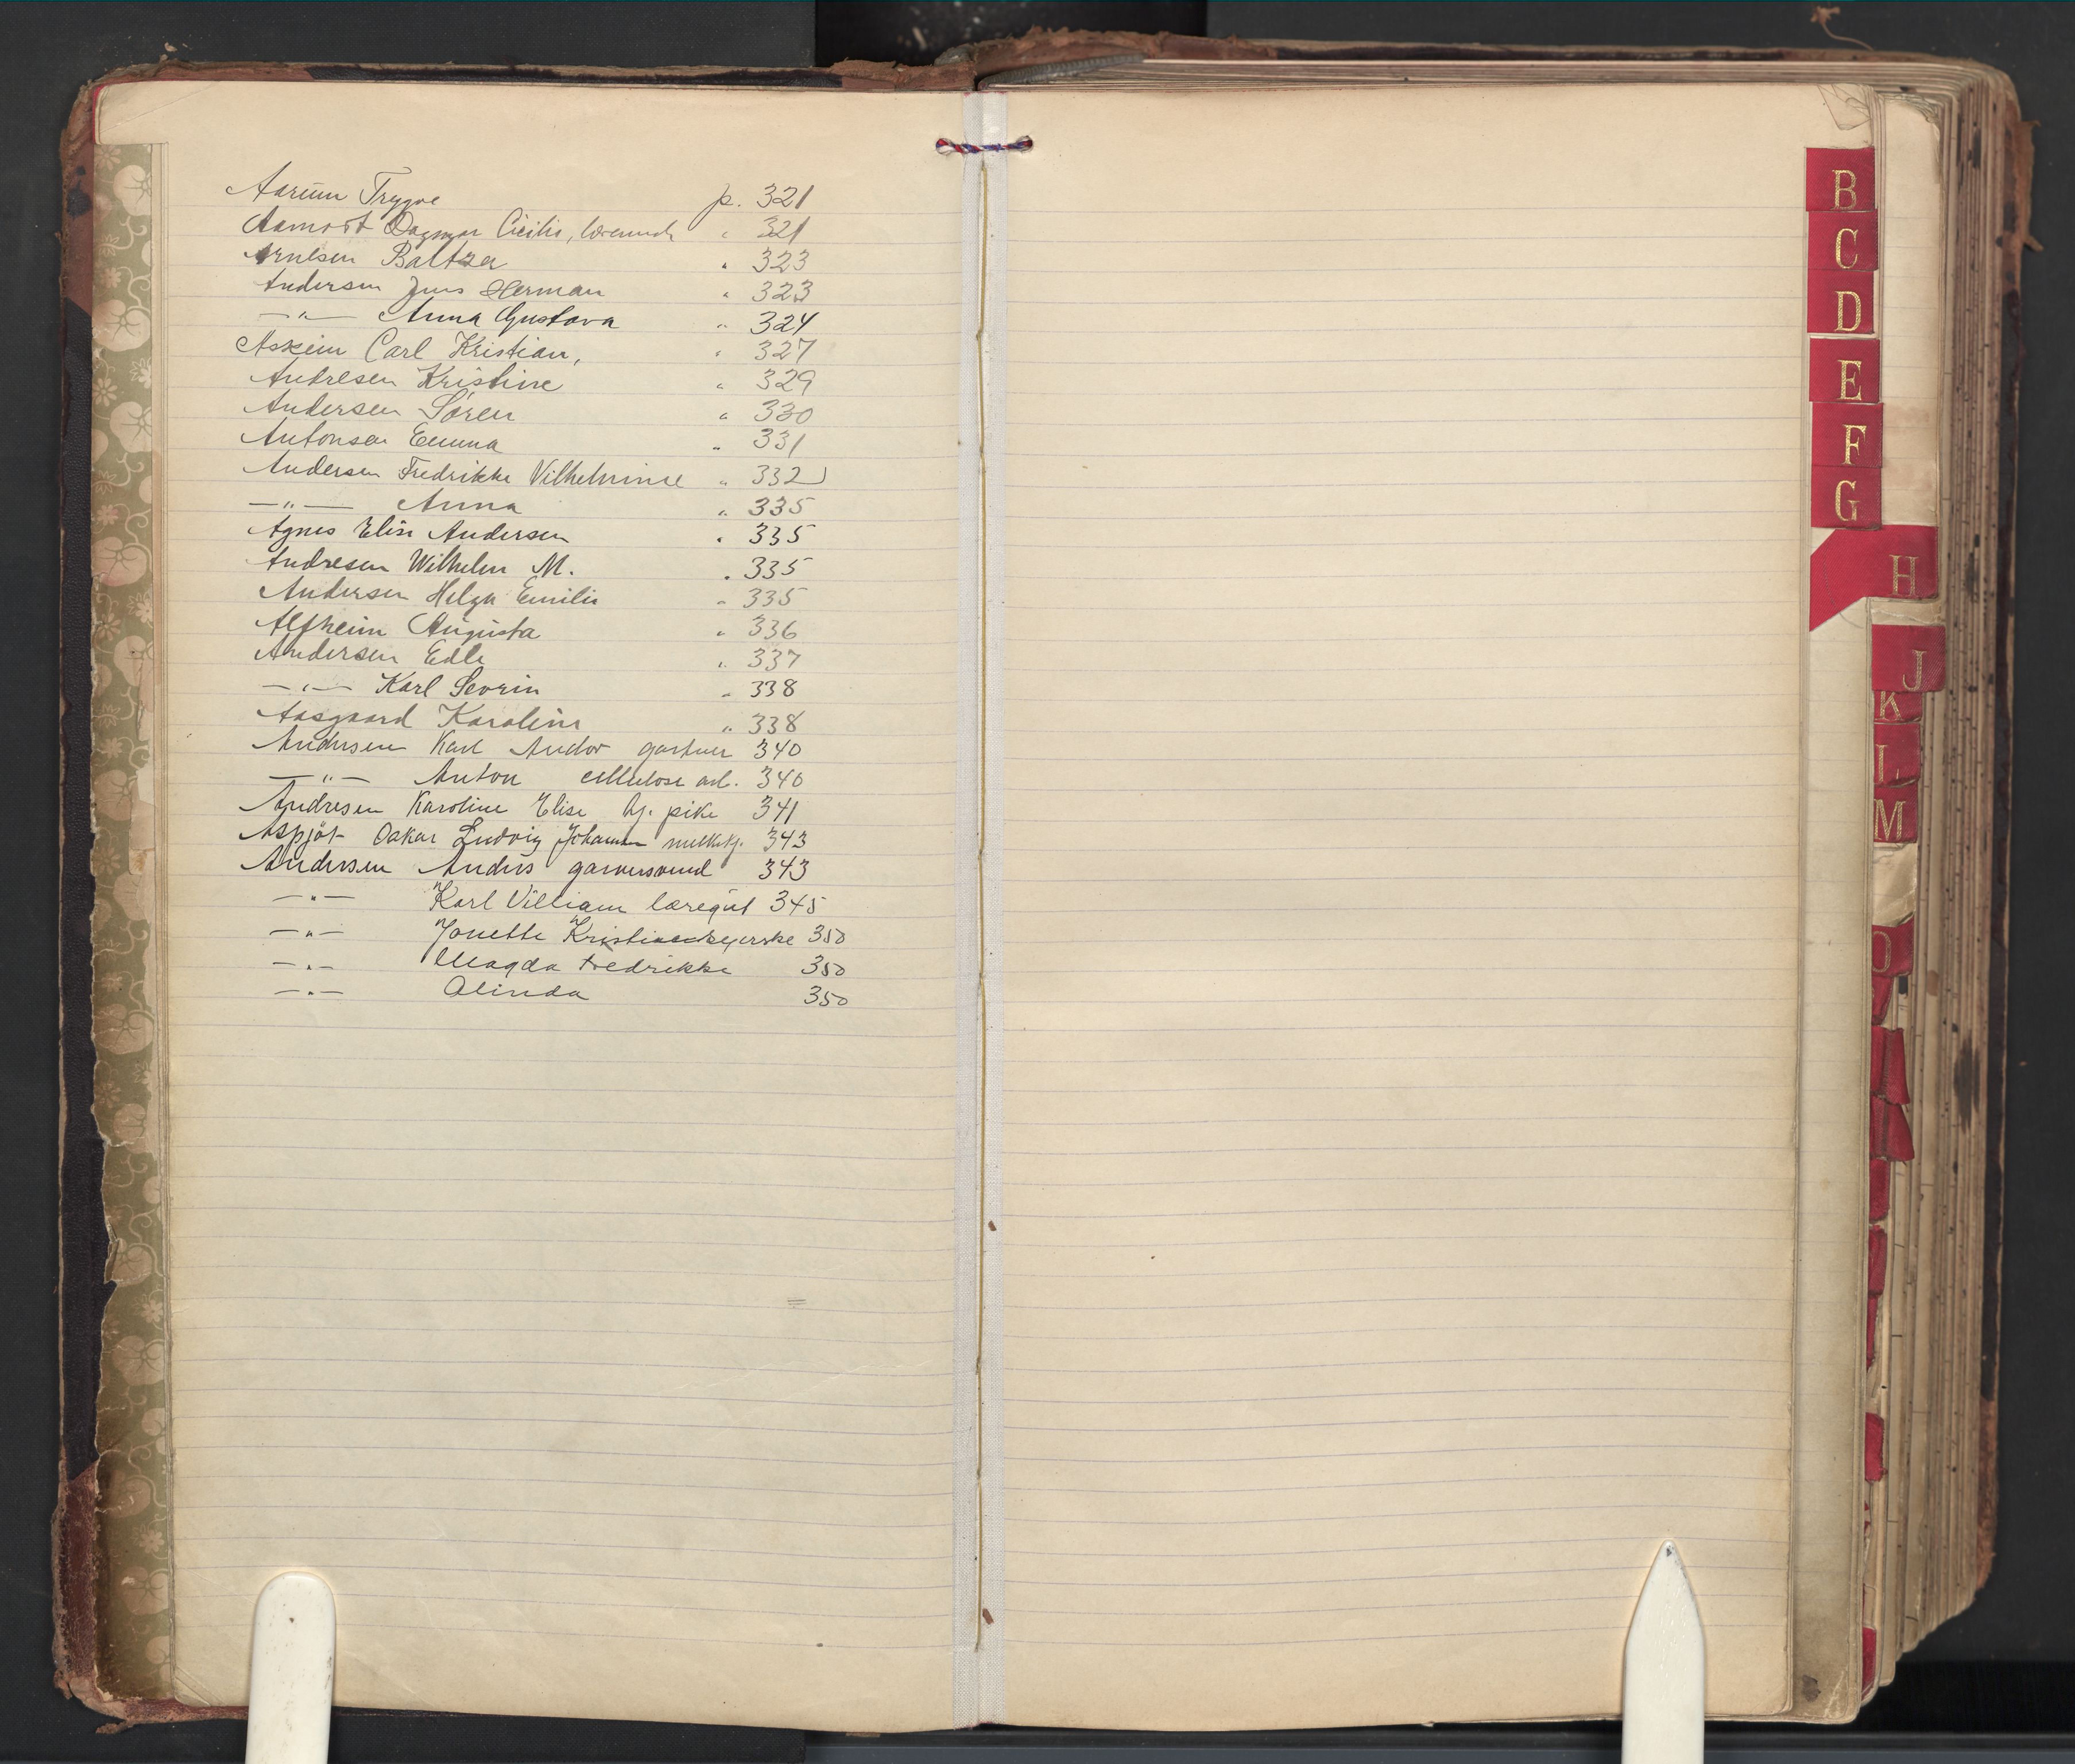 Aarum Trygve p. 321
Aamodt Dagmar Cicilie, " 321
Arntsen Baltzer " 323
Andersen Jens Herman " 323
—"— Anna Gustava " 324
Askeim Carl Kristian, " 327
Andresen Kristine " 329
Andersen Sören " 330
Antonsen Emma " 331
Andersen Fredrikke Vilhelmine " 332
—"— Anna " 335
Agnes Elise Andersen " 335
Andresen Wilhelm M. " 335
Andersen Helga Emilie " 335
Alfheim Augusta " 336
Andersen Edle " 337
—"— Karl Sevrin " 338
Aasgaard Karoline " 338
Andersen Karl Andor gartner 340
—"— Anton cellulose arb. 340
Andresen Karoline Elise hj. pike 341
Aspjöt Oskar Ludvig Johannes 343
Andersen Anders garversvend 343
—"— Karl Villiam læregut 345
—"— Jonette Kristine 350
—"— Magda Fredrikke 350
—"— Alinda 350
B
C
D
E
F
G
H
J
K
L
M
O